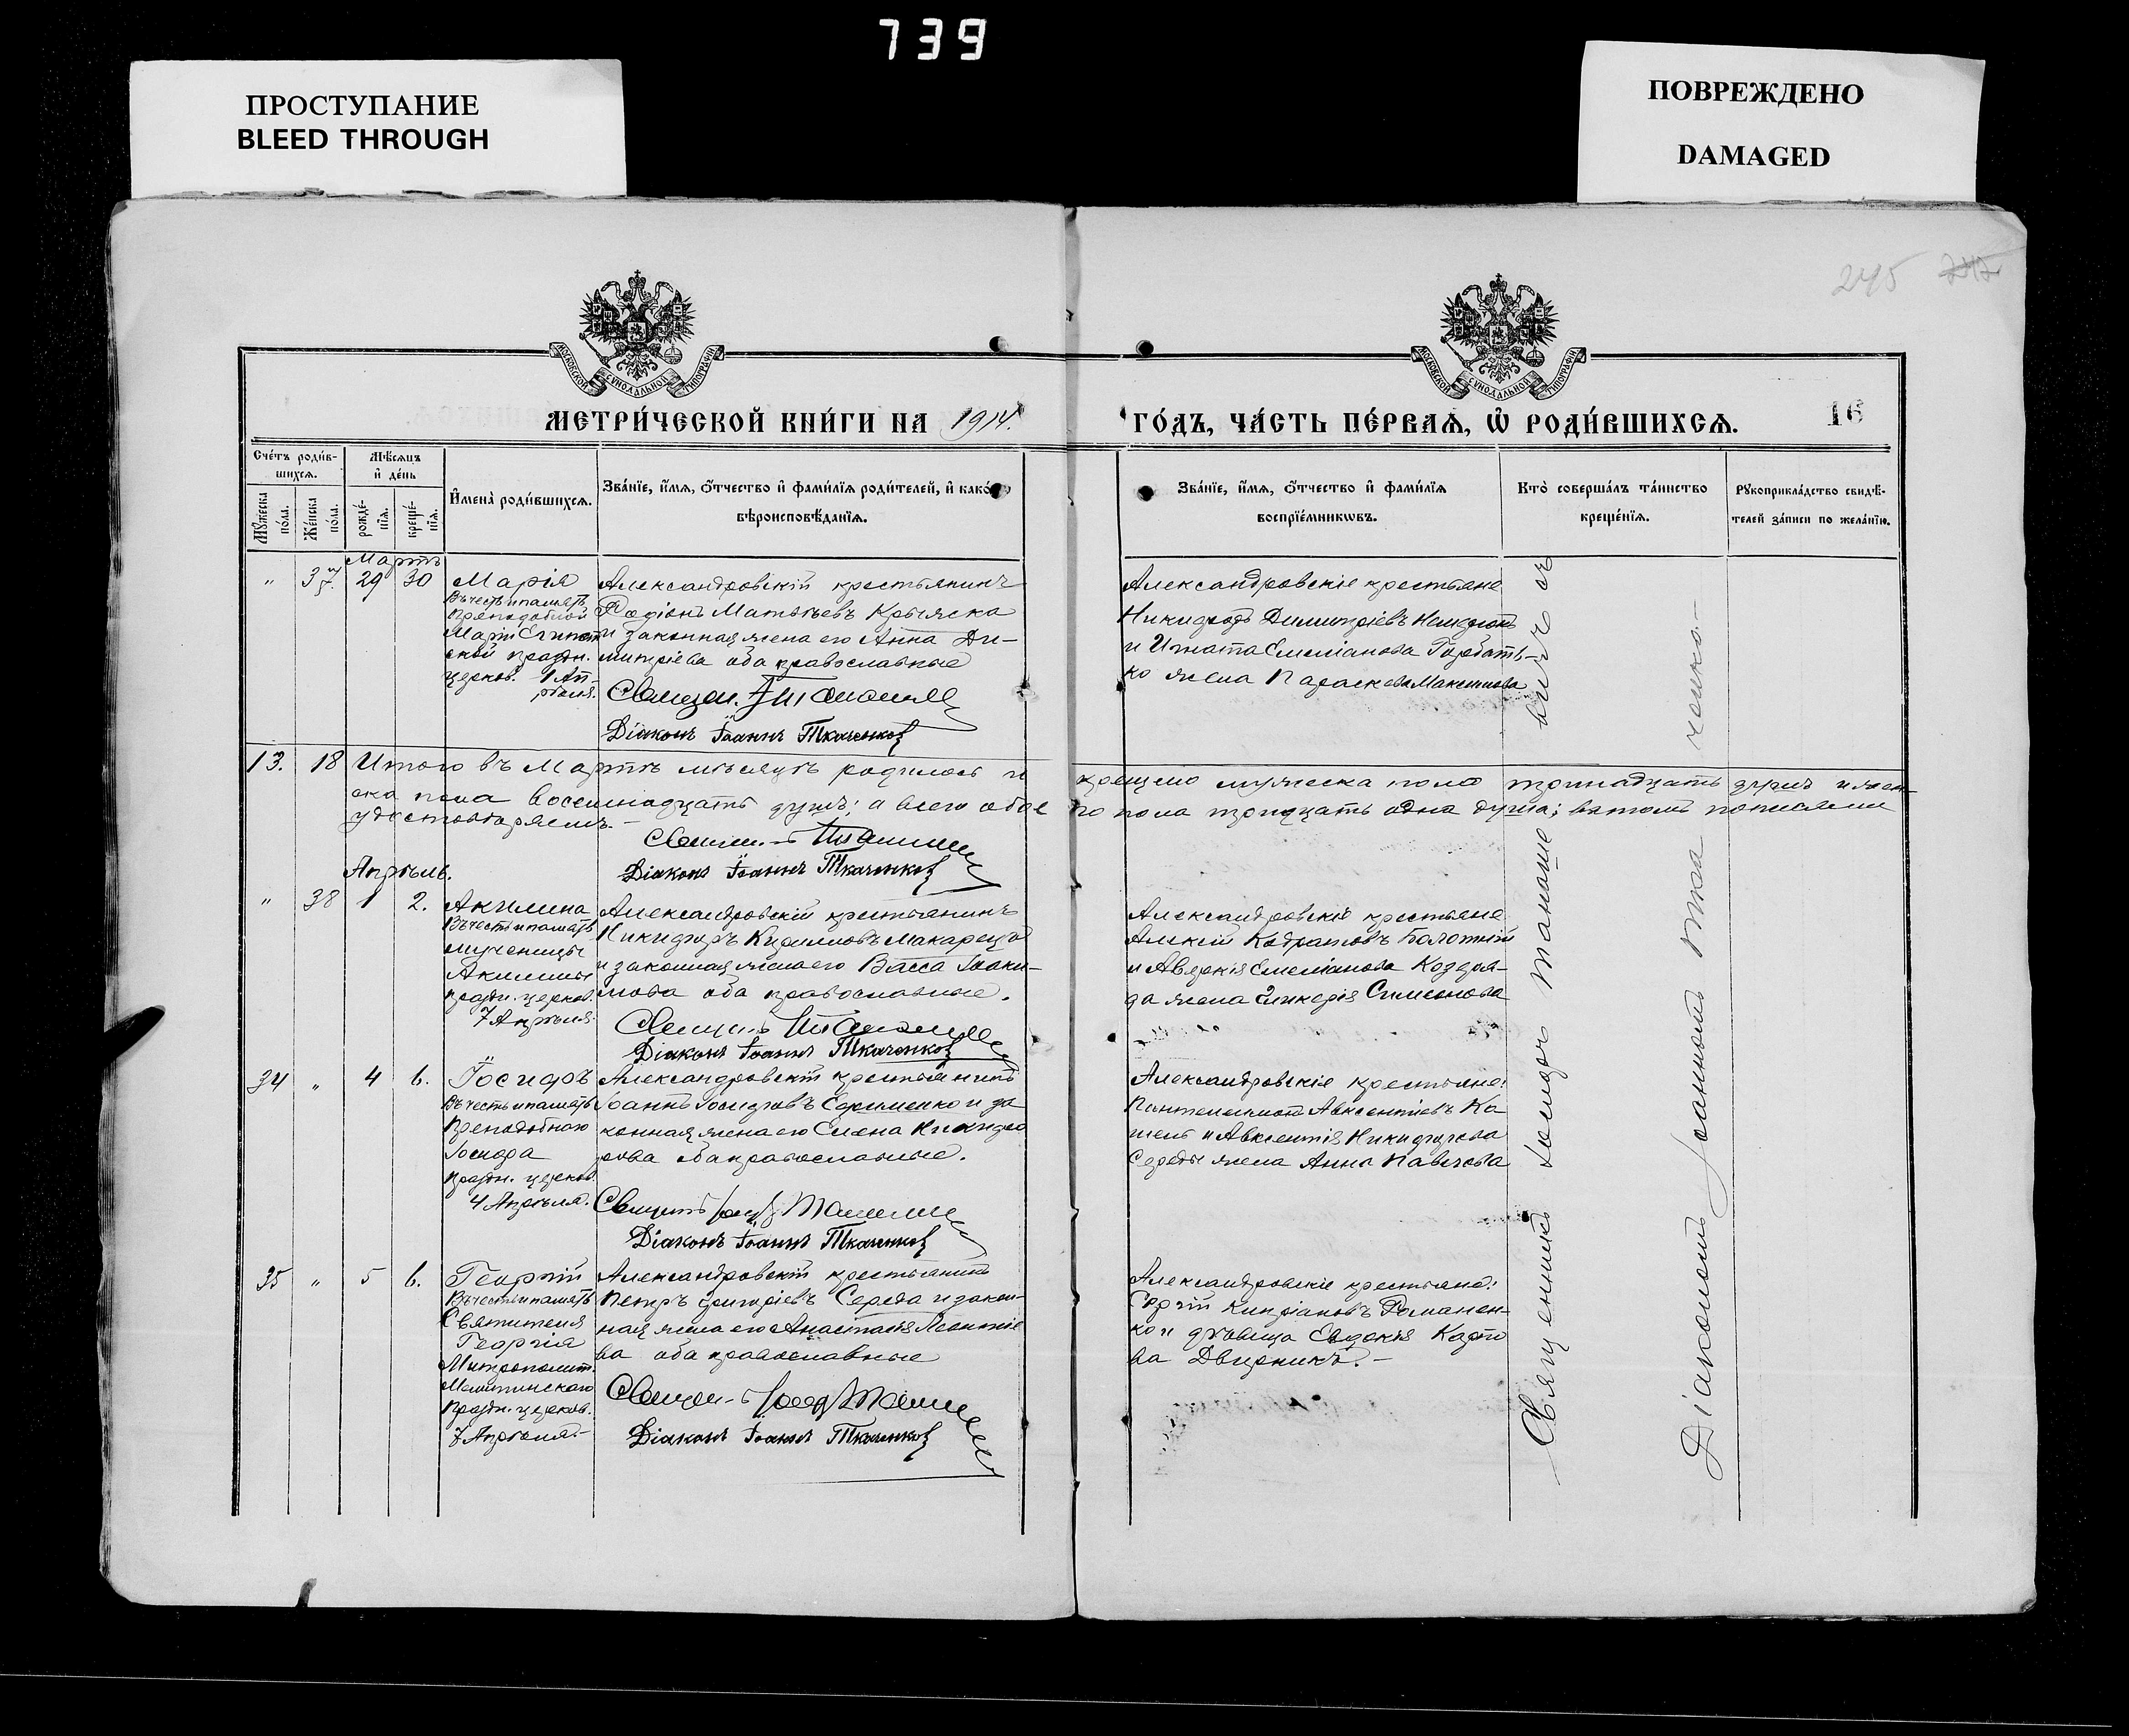 739
ПРОСТУПАНИЕ
BLEED THROUGH
ПОВРЕЖДЕНО
DAMAGED
245
МОСКОВСКОЙ СѴНОДАЛЬНОЙ ТИПОГРАФІИ
МОСКОВСКОЙ СѴНОДАЛЬНОЙ ТИПОГРАФІИ
МЕТРИ́ЧЕСКОЙ КНИ́ГИ НА 1914.
ГО́ДЪ, ЧА́СТЬ ПЕ́РВАѦ, Ѡ҆ РОДИ́ВШИХСѦ.
16
Сче́тъ роди́в-
шихсѧ.
Мѣ́сѧцъ
и҆ де́нь
Мꙋ́жеска
по́ла.
Же́нска
по́ла.
рожде́-
нїѧ.
креще́-
нїѧ.
И҆мена̀ роди́вшихсѧ.
Зва́нїе, и҆́мѧ, ѻ҆́тчество и҆ фами́лїѧ роди́телей, и҆ како́гѡ
вѣроисповѣ́данїѧ.
Зва́нїе, и҆́мѧ, ѻ҆́тчество и҆ фами́лїѧ
воспрїе́мникѡвъ.
Кто̀ соверша́лъ та́инство
креще́нїѧ.
Рꙋкоприкла́дство свидѣ́-
телей за́писи по жела́нїю.
Мартъ
" 37 29 30
Марія
Въ честь и память
Преподобной
Маріи Египет
ской праздн.
церков. 1 Ап-
рѣля.
Александровскій крестьянинъ
Родіонъ Матѳѣевъ
и законная жена его Анна Ди-
митріева оба православные
Діаконъ Іоаннъ Ткаченко
Александровскіе крестьяне
Никифоръ Димитріевъ
и Игната Емеліанова Горбать-
ко жена Параскева Максимова
13. 18 Итого въ Мартѣ мѣсяцѣ родилось и
крещено мужеска пола тринадцать душъ и жен-
ска пола восемнадцать душъ; а всего обое
го пола тридцать одна душа; въ томъ подписями
удостовѣряемъ.-
Діаконъ Іоаннъ Ткаченко
Апрѣль.
" 38 1 2.
Акилина
Въ честь и память
мученицы
Акилины
праздн. церков.
7 Апрѣля.
Александровскій крестьянинъ
Никифоръ Кирилловъ Макарецъ
и законная жена его Васса Іоаки-
мова оба православные.
Діаконъ Іоаннъ Ткаченко
Александровскіе крестьяне
Алексій Кодратовъ Болотній
и Авдекія Емеліанова
да жена Гликерія Симеонова
34 " 4 6.
Іосифъ
Въ честь и память
Преподобнаго
Іосифа
праздн. церков.
4 Апрѣля.
Александровскій крестьянинъ
Іоаннъ Іосифовъ Ефименко и за
конная жена его Елена Никифо
рова оба православные.
Діаконъ Іоаннъ Ткаченко
Александровскіе крестьяне:
Пантелеимонъ Авксентіевъ Ко
шель и Авксентія Никифорова
Середы жена Анна Павлова
35 " 5 6.
Георгій
Въ честь и память
Святителя
Георгія
Митрополит.
Мелитинскаго
праздн. церков.
7 Апрѣля.-
Александровскій крестьянинъ
Петръ Григоріевъ Середа и закон-
ная жена его Анастасія Леонтіе
ва оба православные
Діаконъ Іоаннъ Ткаченко
Александровскіе крестьяне:
Сергій Кипріановъ Романен-
ко и дѣвица Евдокія Карпо
ва Дворникъ.-
Священникъ
Діакономъ Іоанномъ Тка ченко-